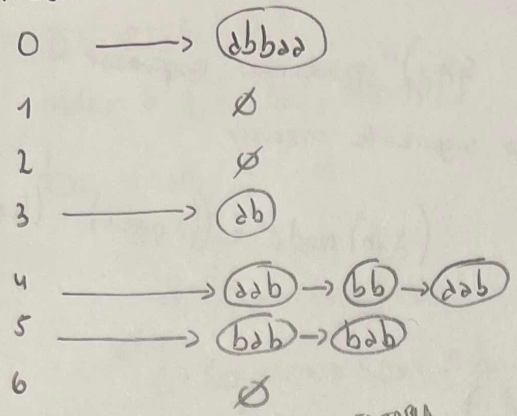 0 → abbaa
1 ∅
2 ∅
3 → ab
4 → aab → bb → aab
5 → bab → bab
6 ∅